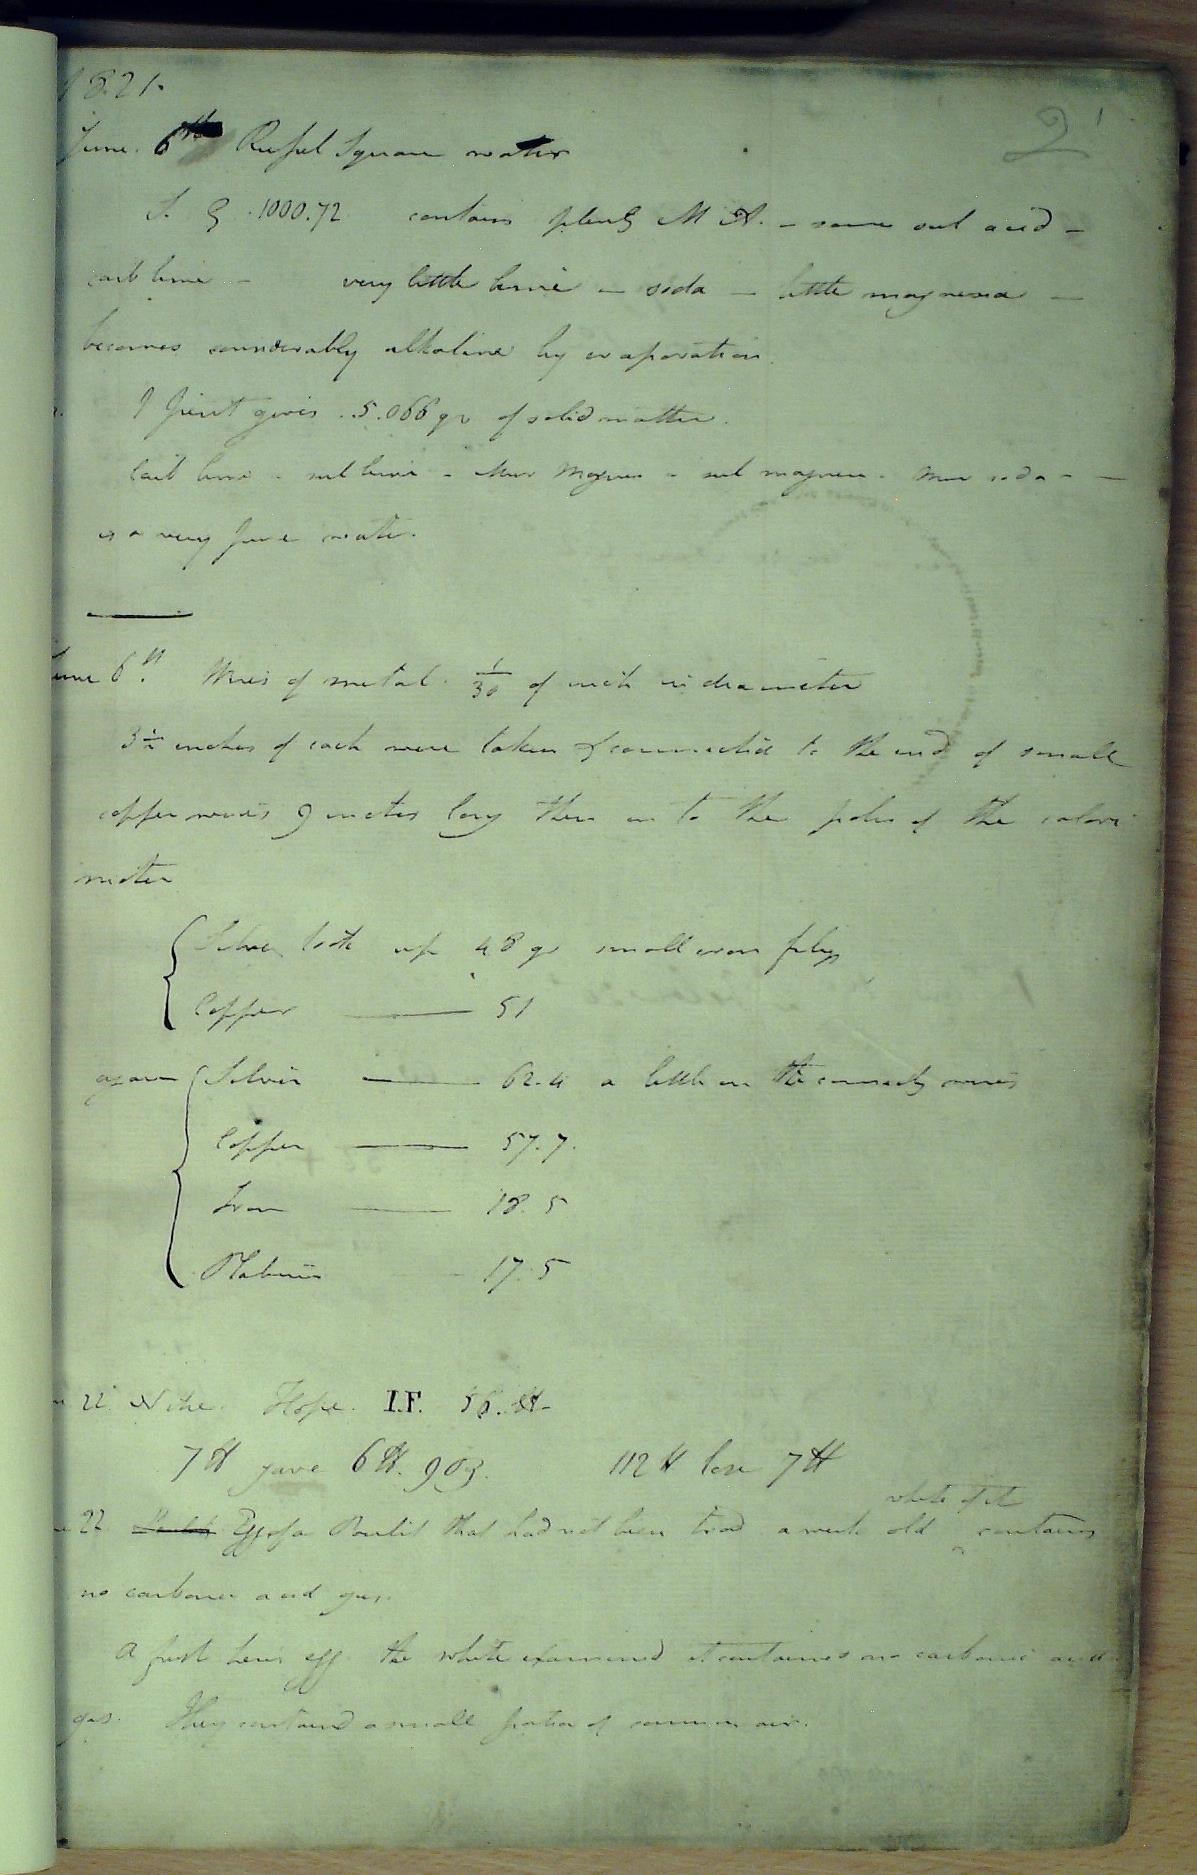 1821.
2
June. 6th Russel Square water
S. G. 1000.72 contains plenty M A. - some sul acid -
carb lime - very little lime - soda - little magnesia -
becomes considerably alkaline by evaporation.
1 pint gives .5.066 gr of solid matter.
Carb lime - sul lime - Mur Magnes - sul magnes - Mur soda - -
is a very pure water.
June 6th. Wires of metal. 1/30 of inch in diameter
3½ inches of each were taken & connected to the end of small
copper wires 9 inches long then on to the poles of the calori
meter
Silver took up 48 gr small iron filgs
Copper —— 51
again Silver —— 62.4 a little on the connectg wires
Copper —— 57.7.
Iron —— 18.5
Platina 17.5
22 Nitre. Hope. I.F. 56.
7 lb gave 6 lb. 903. 112 lb lose 7 lb
white of it
22 Egg of a that had not been trod a week old ^ contains
no carbonic acid gas.
A fresh hens egg. the white examined it contained no carbonic acid
gas. They contained a small portion of common air.